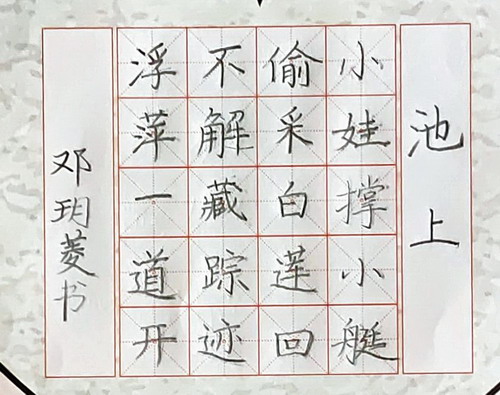 池上
小娃撑小艇
偷采白莲回
不解藏踪迹
浮萍一道开
邓玥菱书